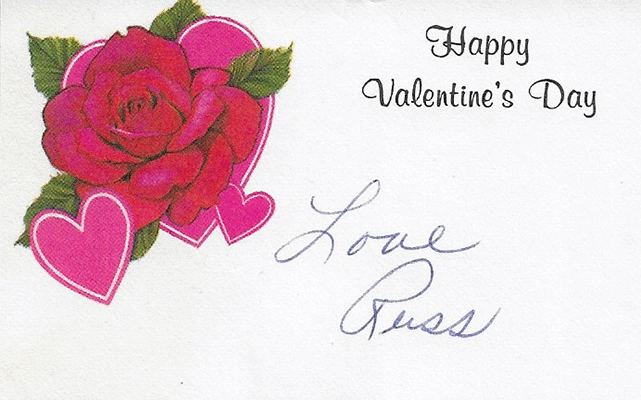 Happy
Valentine's Day
Love
Russ